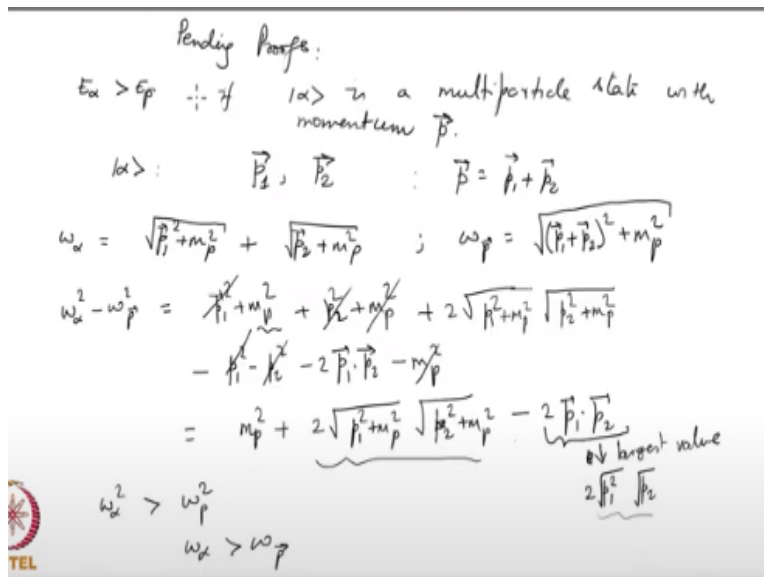 Pending Proofs:
Eα > Ep⃗ ÷ if |α> is a multiparticle state with
momentum p⃗.
|α> : p⃗₁, p⃗₂ : p⃗ = p⃗₁ + p⃗₂
ωα = √(p⃗₁² + mp²) + √(p⃗₂ + mp²) ; ωp⃗ = √((p⃗₁ + p⃗₂)² + mp²)
ωα² - ωp⃗² = p⃗₁² + mp² + p₂² + mp² + 2√(p₁² + mp²) √(p₂² + mp²)
- p₁² - p₂² - 2 p⃗₁·p⃗₂ - mp²
= mp² + 2√(p₁² + mp²) √(p₂² + mp²) - 2 p⃗₁·p⃗₂
↓ largest value
2√p₁² √p₂
ωα² > ωp²
ωα > ωp⃗
TEL